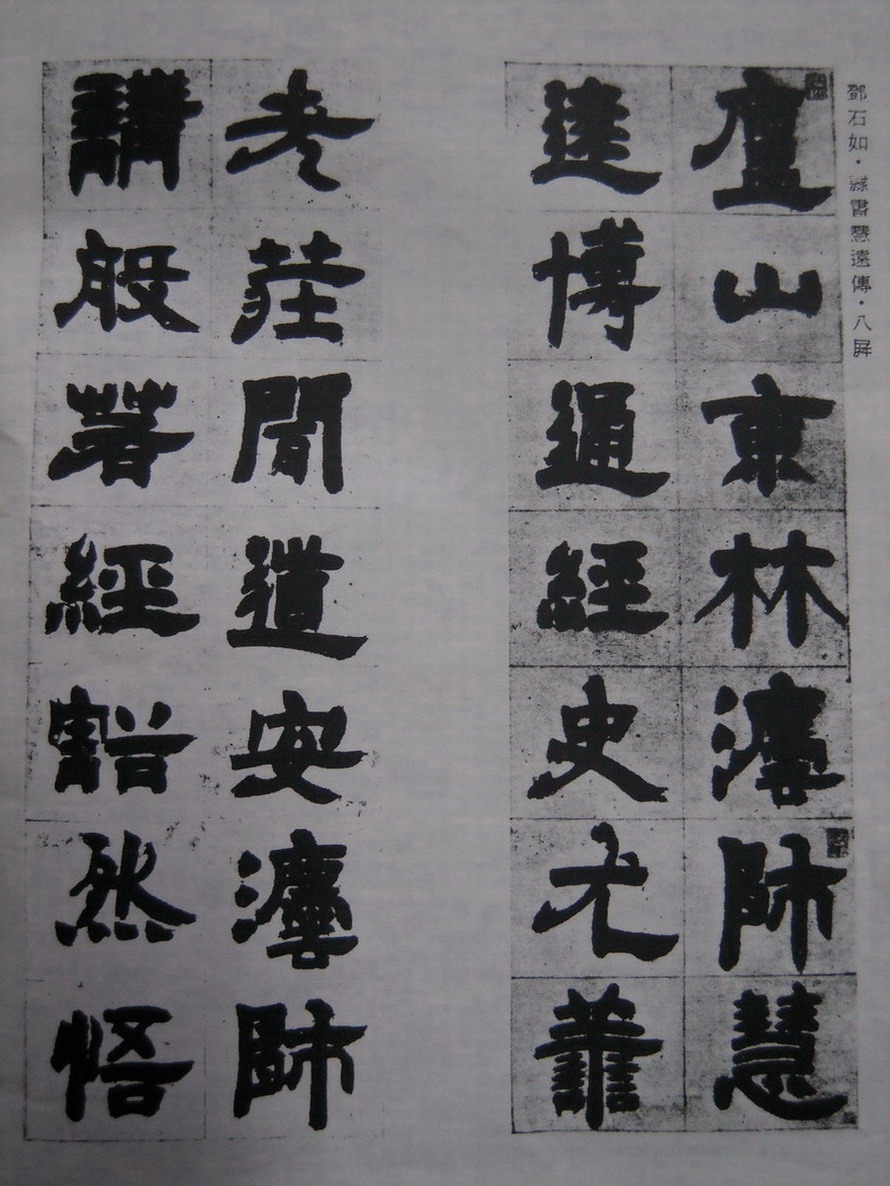 鄧石如·隸書慧遠傳·八屏
廬山東林灋師慧
遠博通經史尤善
老莊聞道安灋師
講般若經豁然悟